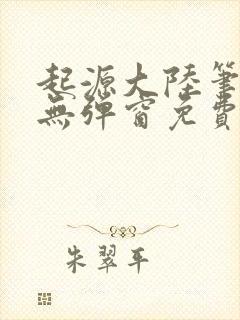 起源大陸筆
無彈窗免費
朱翠平